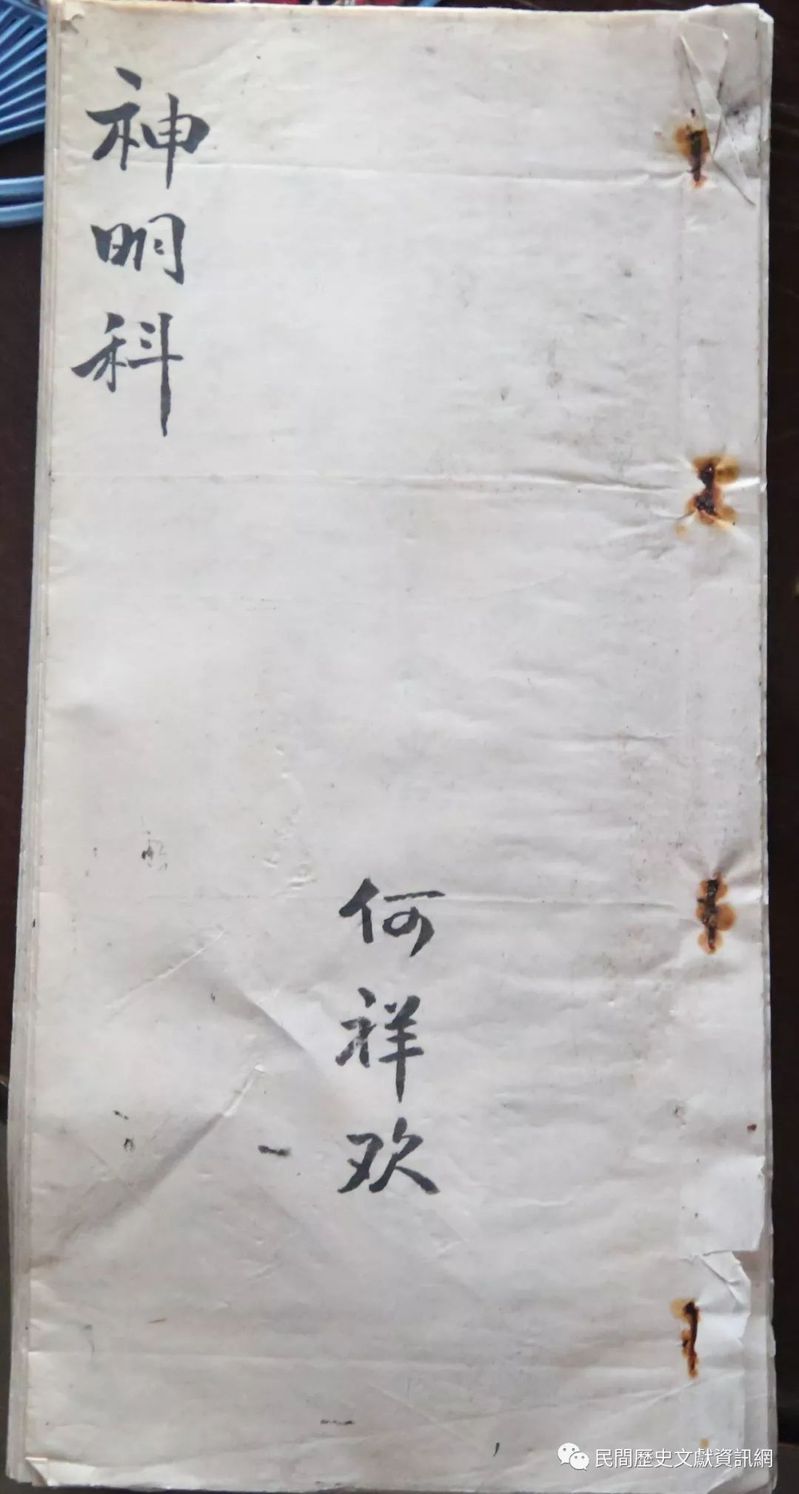 神明科
何祥欢
民間歷史文獻資訊網